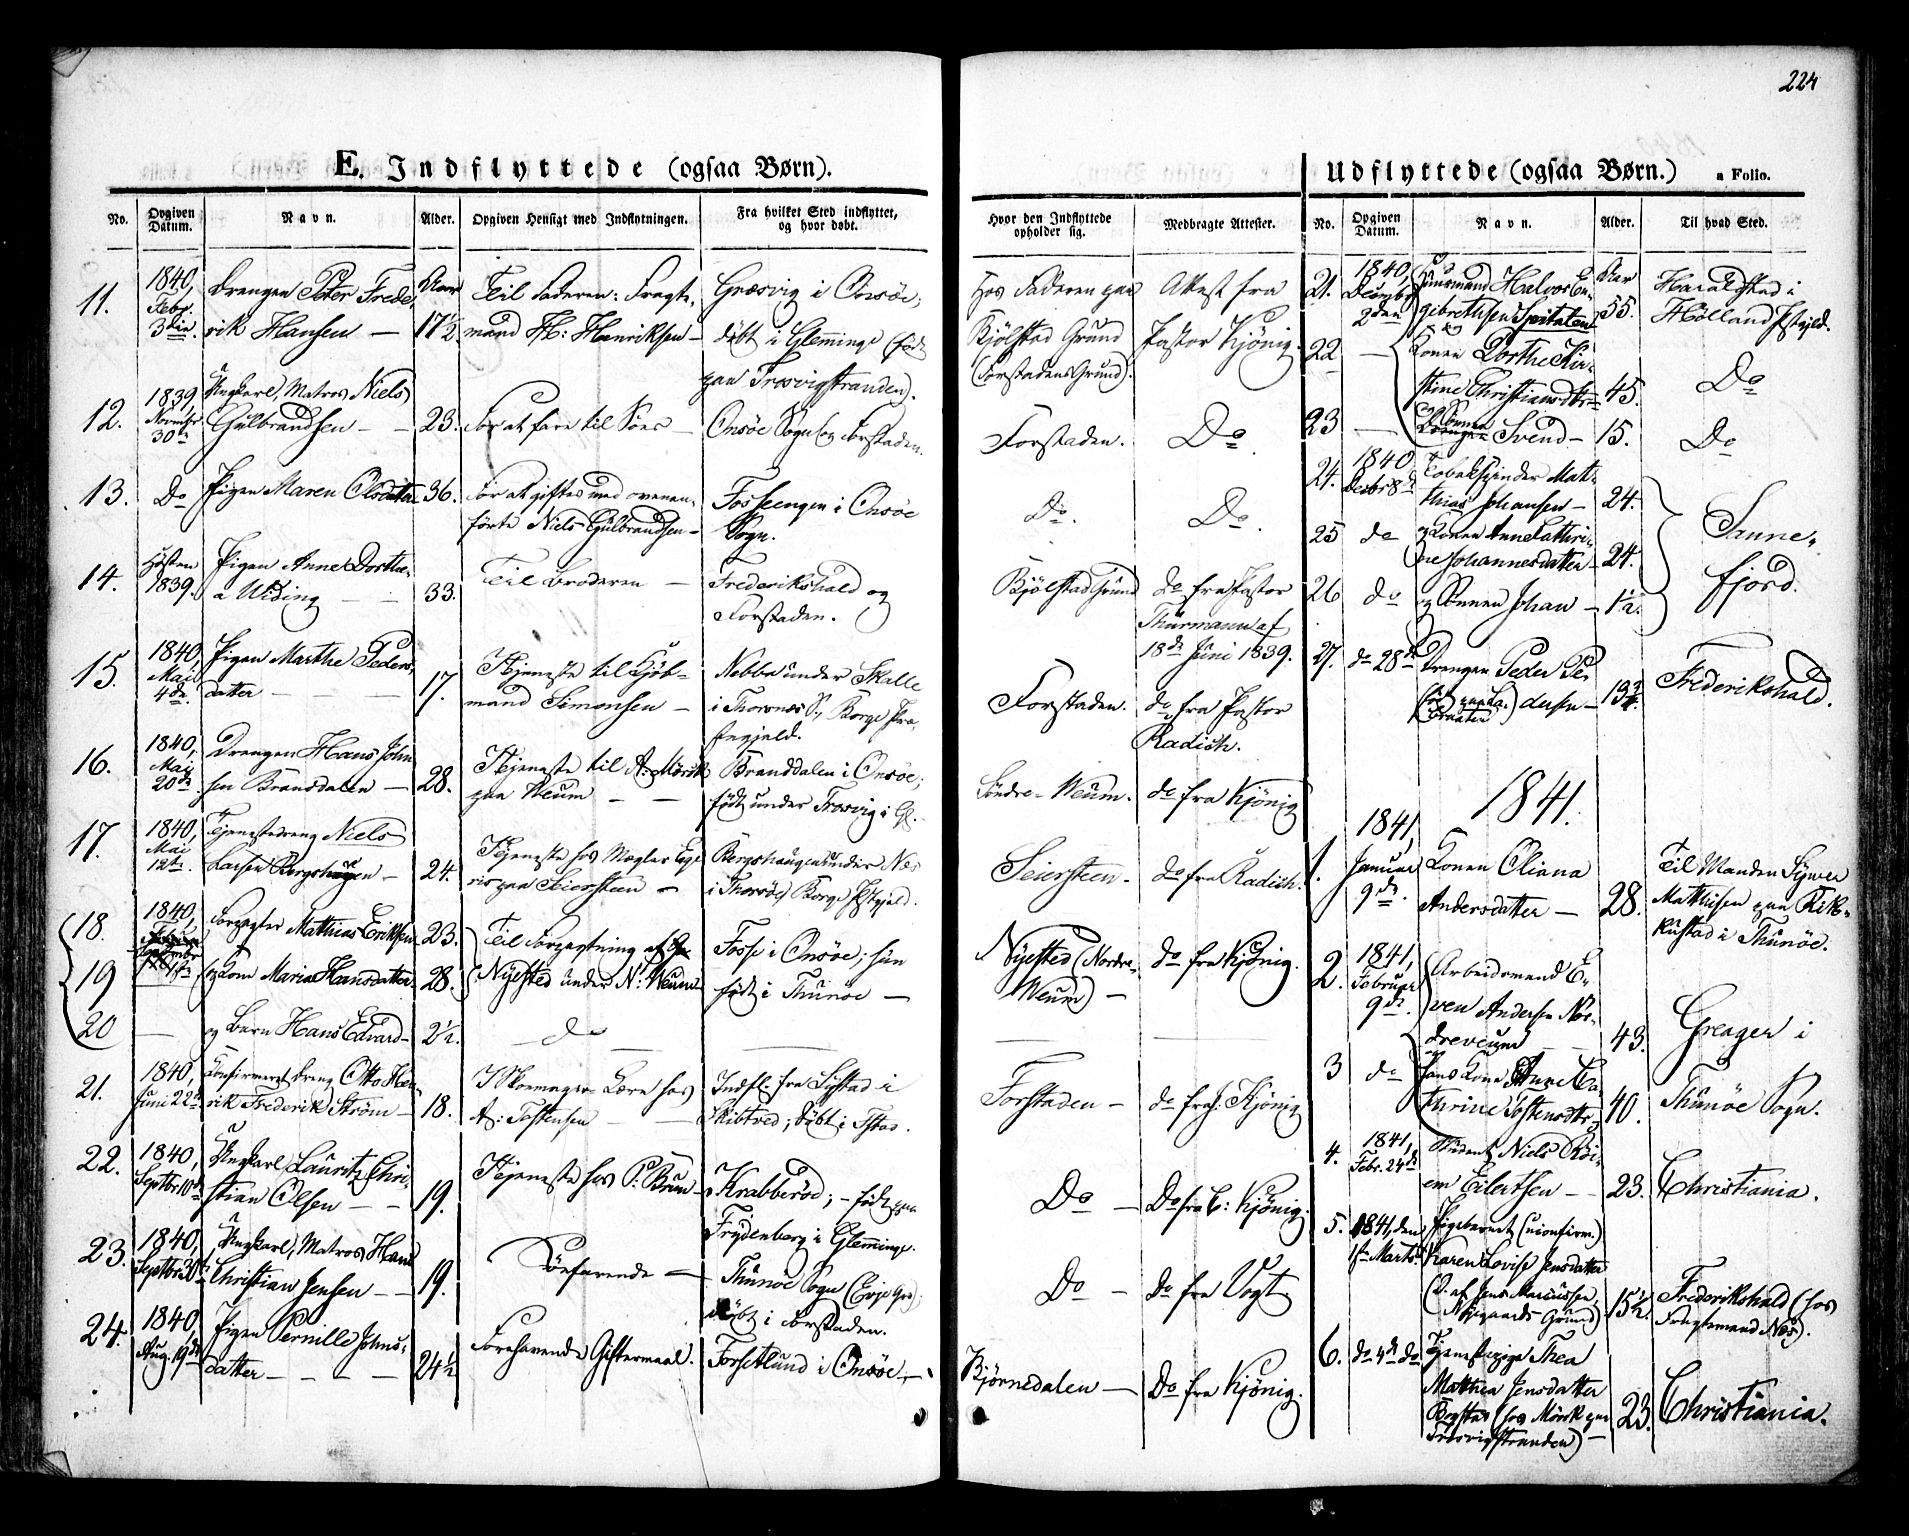 224
E. Indflyttede (ogsaa Børn).
No.
Opgiven Datum.
Navn.
Alder.
Opgiven Hensigt med Indflytningen.
Fra hvilket Sted indflyttet, og hvor døbt.
11.
1840, Febr. 3die.
Drengen Peter Frede-
rik Hansen —
Aar 17½
Til Faderen: Fragt-
mand H: Henriksen —
Græsvig i Onsöe;
döbt i Glemminge (født
paa Trosvigstranden).
12.
1839 Novmbr 30te
Ungkarl, Matros Niels
Gulbrandsen — —
23.
For at fare til Söes —
Onsöe Sogn og Forstaden.
13.
Do
Pigen Maren Olsdatter
36.
For at giftes med ovenan-
förte Niels Gulbrandsen —
Fosseengen i Onsöe
Sogn.
14.
Hösten 1839.
Pigen Anne Dorthe-
a Widing — —
33.
Til Broderen —
Frederikshald og
Forstaden.
15.
1840, Mai 4de.
Pigen Marthe Peders-
datter — — —
17.
Tjeneste til Kjöb-
mand Simonsen —
Nebba under Skalle
i Thorsnæs S., Borge Præ-
stegjeld.
16.
1840, Mai 20de
Drengen Hans John
sen Bransdalen —
28.
Tjeneste til A: Mörck
paa Veum — —
Branddalen i Onsöe;
født under Trosvig i Gl.
17.
1840, Mai 12te.
Tjenestedreng Niels
Larsen Bergshaugen —
24.
Tjeneste hos Mægler
paa Seiersteen —
Bergshaugen under
i Thorsöe, Borge Pstgjeld.
18.
1840,
Forpagter Mathias Eriksen
23.
Til Forpagtning af
Fosse i Onsöe; hun
19
og Kone Maria Hansdatter
28.
Nyested under N: Veum
født i Thunöe —
20
—
og Barn Hans Edvard —
2½.
do
21.
1840, Juni 22de
Confirmeret Dreng Otto Hen-
rik Frederik Ström —
18.
I Skomager Lære hos
A: Tostensen — —
Indfl: fra Systad i
Skibtved; döbt i Istad.
22.
1840, Septbr. 10de
Ungkarl Lauritz Chri-
stian Olsen — —
19.
Tjeneste hos P: Brun —
Krabberød; — født paa
Frydenberg i Glemminge.
23.
1840, Septbr. 30te
Ungkarl, Matros Hans
Christian Jensen — —
19.
Söefarende —
Thunöe Sogn
döbt i Forstaden.
24.
1840, Aug. 19de
Pigen Pernille Johns-
datter — — — —
24½
Forehavende Giftermaal.
Forsetlund i Onsöe —
Hvor den Indflyttede opholder sig.
Medbragte Attester.
Hos Faderen paa
Bjölstad Grund
(Forstadens Grund).
Attest fra
Pastor Kjönig.
Forstaden.
Do
Do.
Do.
Bjölstad Grund
do fra Pastor
Thurmann af
18de Juni 1839.
Forstaden.
do fra Pastor
Radich.
Söndre-Veum.
do fra Kjönig
Seiersteen —
do fra Radich.
Nyested (Nordre-
Veum) —
do fra Kjönig.
Forstaden —
do fra Kjönig
Do —
Do fra C: Kjönig.
Do —
Do fra Vogt
Björnedalen —
Do fra Kjönig.
Udflyttede (ogsaa Børn.)
a Folio.
No.
Opgiven Datum.
Navn.
Alder.
Til hvad Sted.
21.
1840, Decmbr 2den
Huusmand Halvor En-
gibrethsen Spitalen
Aar 55.
Haraldstad i
Hölland Pstgjeld.
22
—
Konen Dorthe Kir-
stine Christiansdtr —
45.
Do
23
—
og Sönnen Svend —
15.
Do
24.
1840 Decbr 8de
Tobakspinder Mat-
thias Johansen —
24.
Sanne-
fjord.
25
do
og Konen Anne Cathri-
ne Johannesdatter —
24.
26
do
og Sönnen Johan —
1½.
27.
do 28de
Drengen Peder Pe-
dersen —
13¾.
Frederikshald.
1841.
1.
1841, Januar 9de.
Konen Oliana
Andersdatter —
28.
Til Manden Syver
Mathisen paa Rik-
kustad i Thunöe.
2.
1841, Februar 9de.
Arbeidsmand E-
ven Andersen Nor-
dreveum —
43.
Greager i
3
do
Hans Kone Anne Ca-
thrine Tostensdtr,
40.
Thunöe Sogn.
4.
1841, Febr. 24de
Student Niels Röi-
em Eilertsen — —
23.
Christiania.
5.
1841, den 1ste Marts
Pigebarnet (uconfirm.)
Karen Lovise Jensdatter
(D. af Jens Marcussen,
Nygaards Grund)
15½.
Frederikshald (hos
Fragtemand Næs).
6.
do 4de do
Tjenestepige Thea
Mathea Jensdatter
Bogstad (hos Mörck paa
Trosvigstranden) —
23.
Christiania.